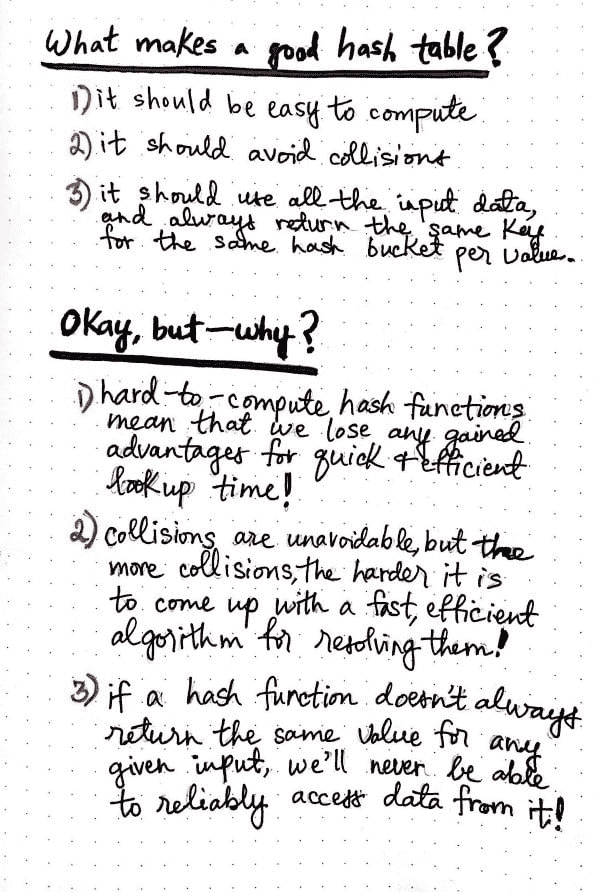 What makes a good hash table?
1) it should be easy to compute
2) it should avoid collisions
3) it should use all the input data,
and always return the same Key
for the same hash bucket per value.
Okay, but—why?
1) hard-to-compute hash functions
mean that we lose any gained
advantages for quick & efficient
lookup time!
2) collisions are unavoidable, but the
more collisions, the harder it is
to come up with a fast, efficient
algorithm for resolving them!
3) if a hash function doesn't always
return the same value for any
given input, we'll never be able
to reliably access data from it!